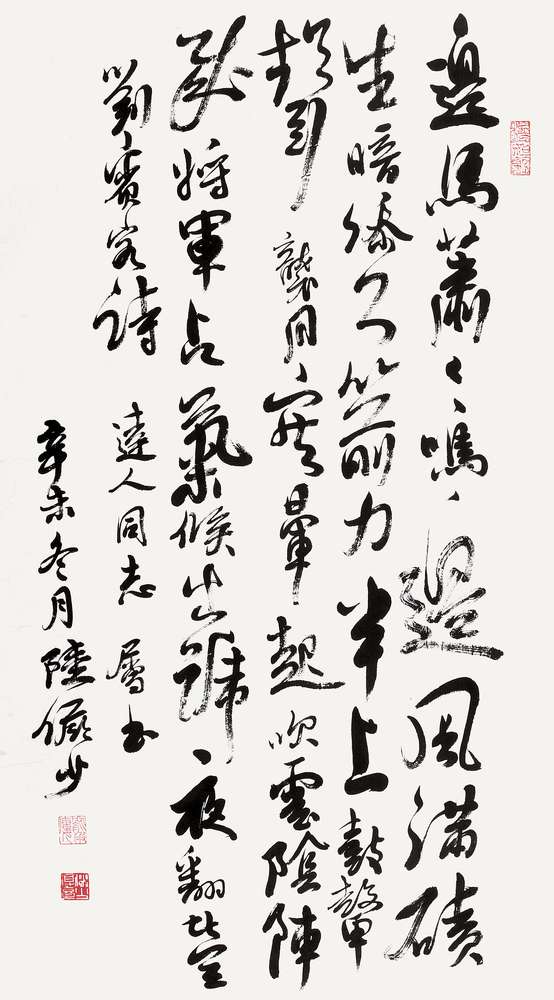 邊馬蕭〻鳴邊風滿磧
生暗添弓箭力半上鼓鼙
聲襲月寒暈起吹雲陰陣
成將軍占氣候出號夜翻營
劉賓客詩
達人同志屬書
辛未冬月陸儼少